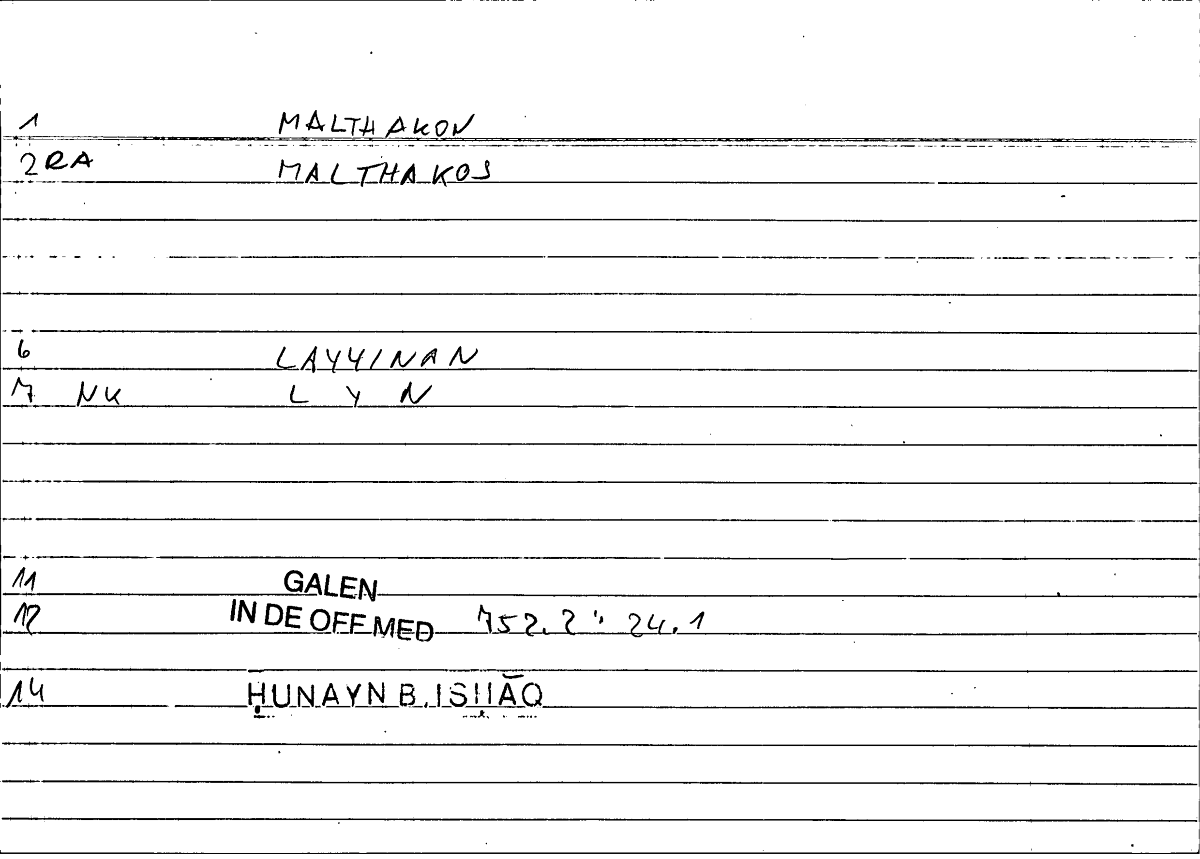 1 MALTHAKON
2RA MALTHAKOS
6 LAYYINAN
7 NK L Y N
11 GALEN
12 IN DE OFF MED 752.2 : 24.1
14 ḤUNAYN B. ISḤĀQ